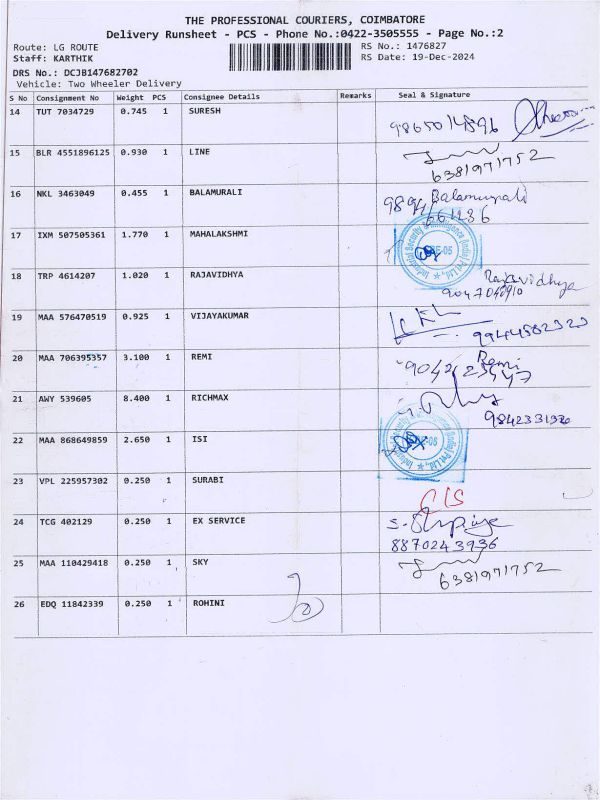 THE PROFESSIONAL COURIERS, COIMBATORE
Delivery Runsheet - PCS - Phone No.:0422-3505555 - Page No.:2
Route: LG ROUTE RS No.: 1476827
Staff: KARTHIK RS Date: 19-Dec-2024
DRS No.: DCJB147682702
Vehicle: Two Wheeler Delivery
S No Consignment No Weight PCS Consignee Details Remarks Seal & Signature
14 TUT 7034729 0.745 1 SURESH
15 BLR 4551896125 0.930 1 LINE
6381971752
16 NKL 3463049 0.455 1 BALAMURALI Balamurali
17 IXM 507505361 1.770 1 MAHALAKSHMI
18 TRP 4614207 1.020 1 RAJAVIDHYA Rajavidhya
19 MAA 576470519 0.925 1 VIJAYAKUMAR
9944582323
20 MAA 706395357 3.100 1 REMI Remi
21 AWY 539605 8.400 1 RICHMAX
22 MAA 868649859 2.650 1 ISI
23 VPL 225957302 0.250 1 SURABI
24 TCG 402129 0.250 1 EX SERVICE
8870243936
25 MAA 110429418 0.250 1 SKY
6381971752
26 EDQ 11842339 0.250 1 ROHINI